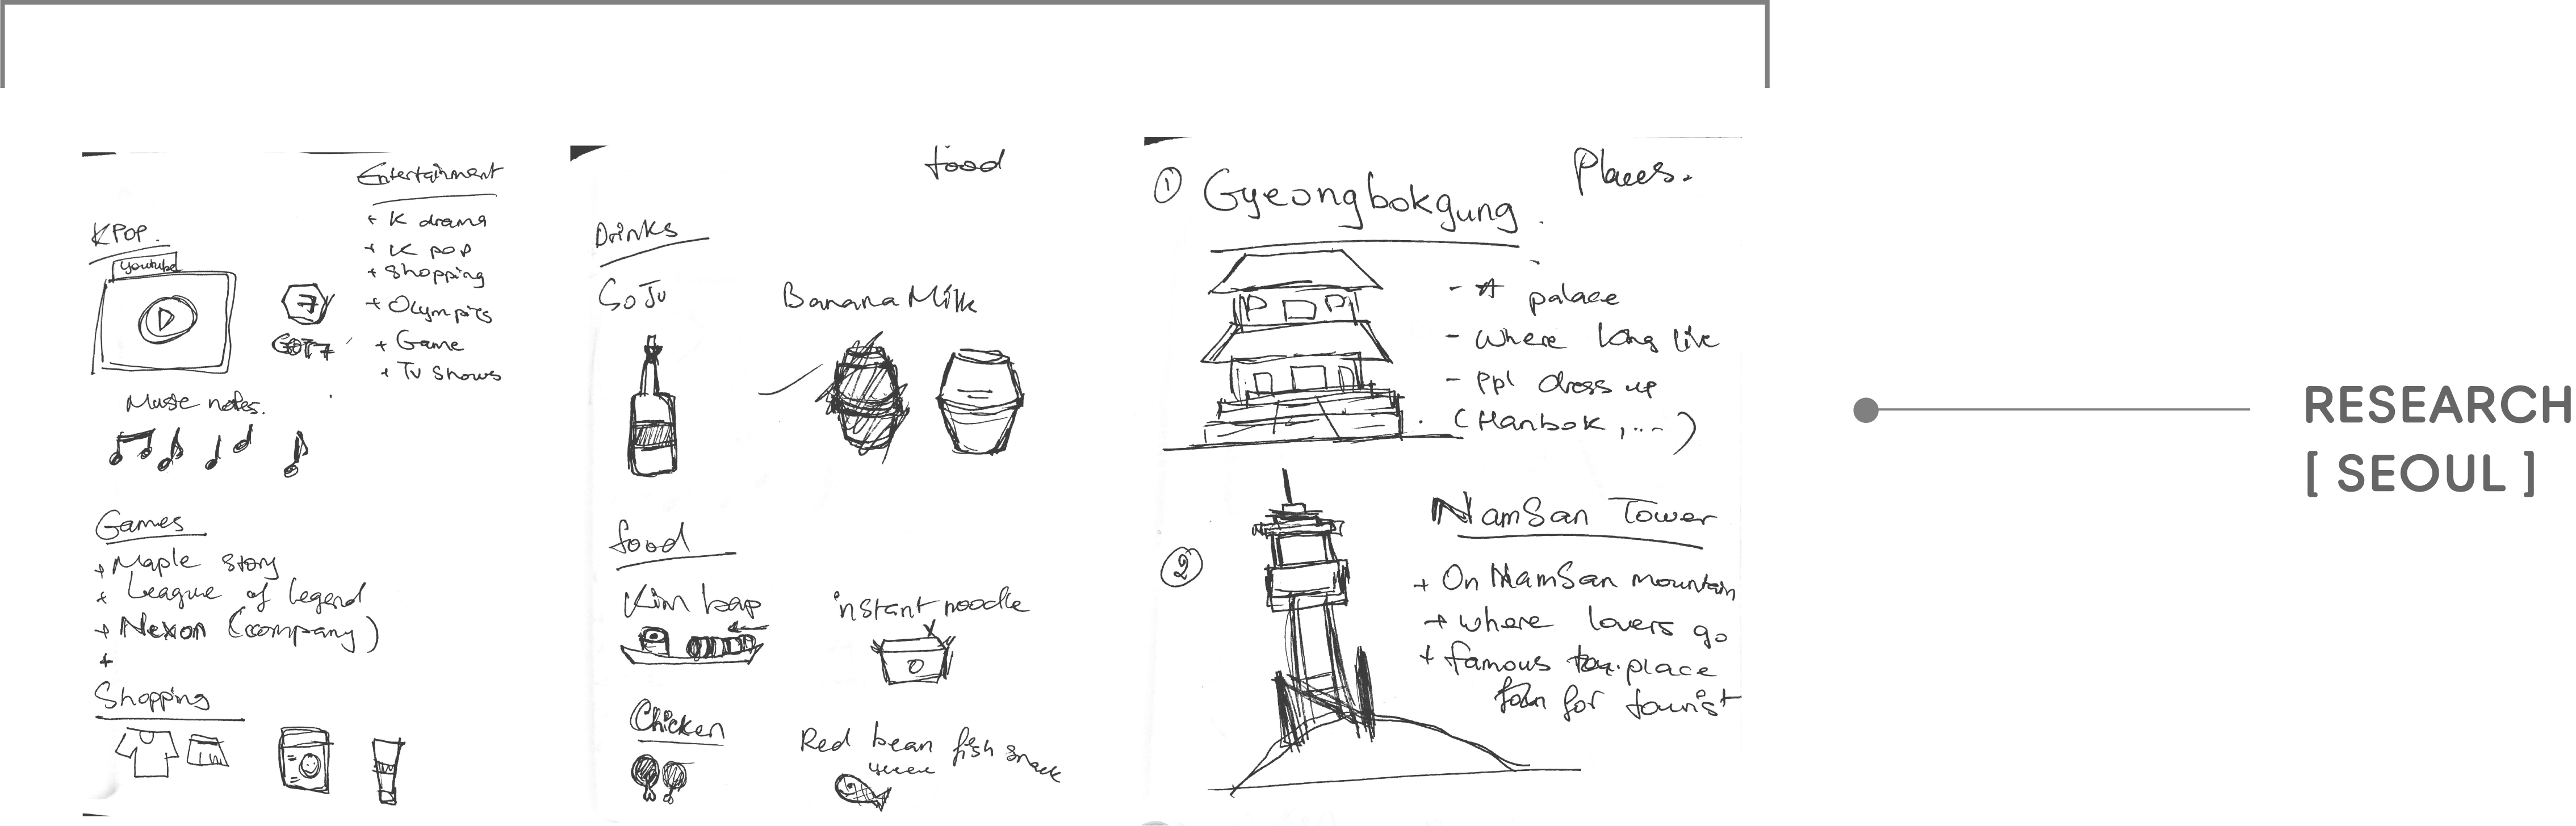 Entertainment
+ K drama
+ K pop
+ Shopping
+ Olympics
+ Game
+ Tv Shows
KPOP.
Youtube
7
GOT7
Music notes.
Games
+ Maple story
+ League of legend
+ Nexon (company)
+
Shopping
food
Drinks
SoJu
Banana Milk
food
Kim bap
instant noodle
Chicken
Red bean fish snack
Places.
① Gyeongbokgung
- palace
- Where king live
- ppl dress up
(Hanbok, ...)
②
NamSan Tower
+ On NamSan mountain
+ where lovers go
+ famous place
for tourist
RESEARCH
[ SEOUL ]